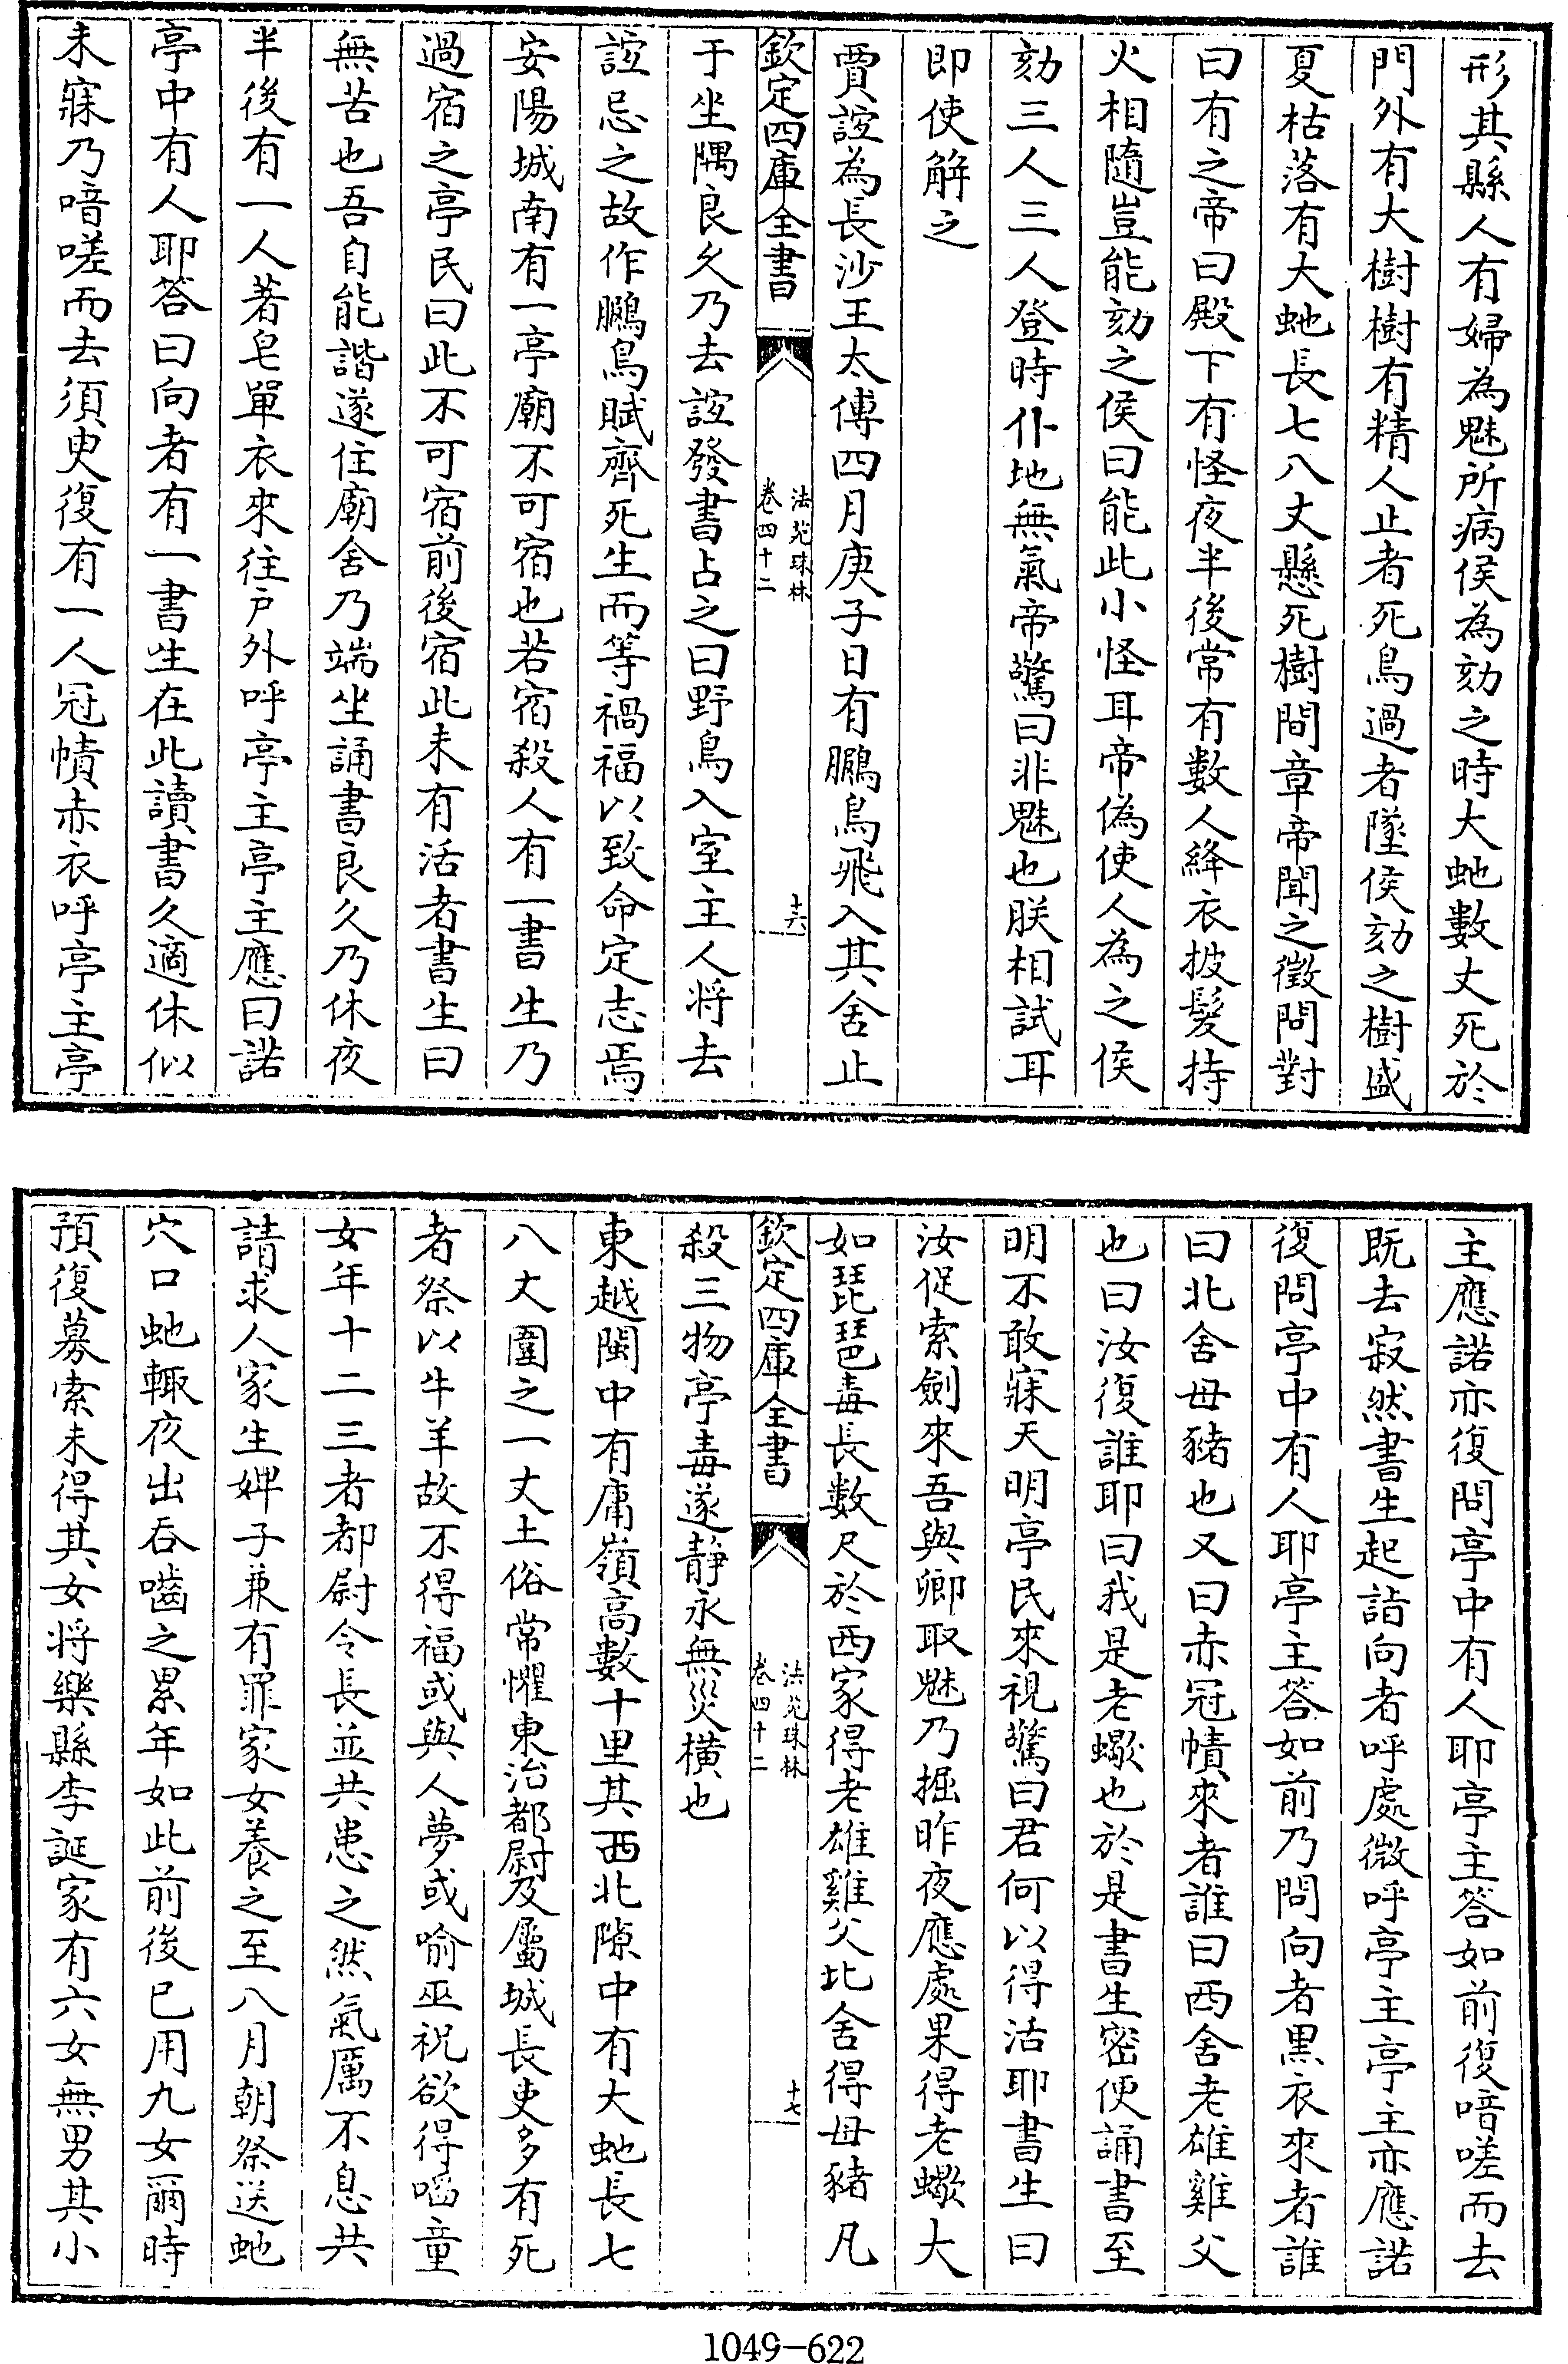 形其縣人有婦為魅所病侯為劾之時大虵數丈死於
門外有大樹樹有精人止者死鳥過者墜侯劾之樹盛
夏枯落有大虵長七八丈懸死樹間章帝聞之徵問對
曰有之帝曰殿下有怪夜半後常有數人絳衣披髮持
火相隨豈能劾之侯曰能此小怪耳帝偽使人為之侯
劾三人三人登時仆地無氣帝驚曰非魅也朕相試耳
即使解之
賈誼為長沙王太傅四月庚子日有鵩鳥飛入其舍止
欽定四庫全書
法苑珠林
卷四十二
十六
于坐隅良久乃去誼發書占之曰野鳥入室主人將去
誼忌之故作鵩鳥賦齊死生而等禍福以致命定志焉
安陽城南有一亭廟不可宿也若宿殺人有一書生乃
過宿之亭民曰此不可宿前後宿此未有活者書生曰
無苦也吾自能諧遂住廟舍乃端坐誦書良久乃休夜
半後有一人著皂單衣來往戶外呼亭主亭主應曰諾
亭中有人耶答曰向者有一書生在此讀書久適休似
未寐乃喑嗟而去須臾復有一人冠幘赤衣呼亭主亭
主應諾亦復問亭中有人耶亭主答如前復喑嗟而去
既去寂然書生起詣向者呼處微呼亭主亭主亦應諾
復問亭中有人耶亭主答如前乃問向者黑衣來者誰
曰北舍母豬也又曰赤冠幘來者誰曰西舍老雄雞父
也曰汝復誰耶曰我是老蠍也於是書生密便誦書至
明不敢寐天明亭民來視驚曰君何以得活耶書生曰
汝促索劍來吾與卿取魅乃掘昨夜應處果得老蠍大
如琵琶毒長數尺於西家得老雄雞父北舍得母豬凡
欽定四庫全書
法苑珠林
卷四十二
十七
殺三物亭毒遂靜永無災橫也
東越閩中有庸嶺高數十里其西北隙中有大虵長七
八丈圍之一丈土俗常懼東治都尉及屬城長吏多有死
者祭以牛羊故不得福或與人夢或喻巫祝欲得啗童
女年十二三者都尉令長並共患之然氣厲不息共
請求人家生婢子兼有罪家女養之至八月朝祭送虵
穴口虵輒夜出吞嚙之累年如此前後已用九女爾時
預復募索未得其女將樂縣李誕家有六女無男其小
1049-622